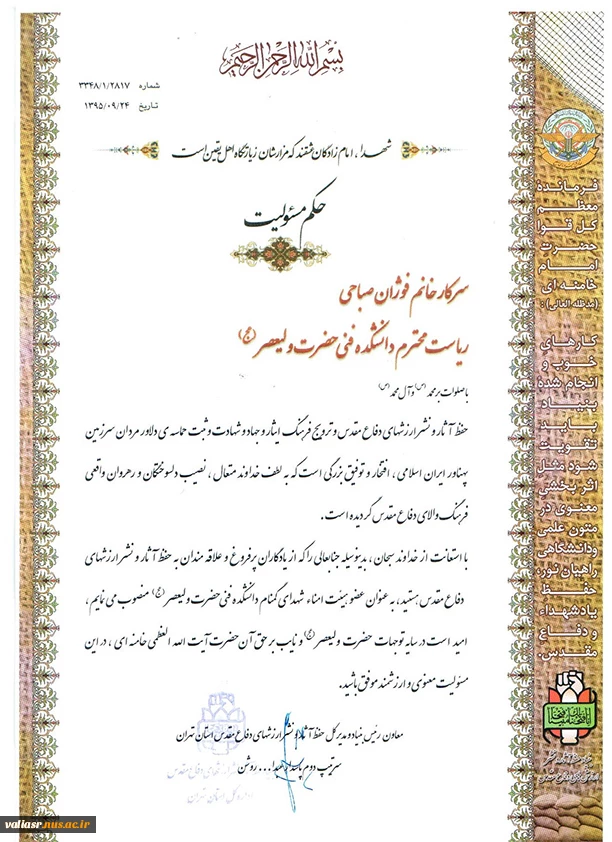 بسم الله الرحمن الرحیم
شماره ۳۳۴۸/۱/۲۸۱۷
تاریخ ۱۳۹۵/۰۹/۲۴
شهدا، امام زادگان عشقند که مزارشان زیارتگاه اهل یقین است
حکم مسئولیت
سرکار خانم فوژان صباحی
ریاست محترم دانشکده فنی حضرت ولیعصر (عج)
با صلوات بر محمد (ص) و آل محمد (ص)
حفظ آثار و نشر ارزشهای دفاع مقدس و ترویج فرهنگ ایثار و جهاد و شهادت و ثبت حماسه ی دلاور مردان سرزمین
پهناور ایران اسلامی، افتخار و توفیق بزرگی است که به لطف خداوند متعال، نصیب دلسوختگان و رهروان واقعی
فرهنگ والای دفاع مقدس گردیده است.
با استعانت از خداوند سبحان، بدینوسیله جنابعالی را که از یادگاران پرفروغ و علاقه مندان به حفظ آثار و نشر ارزشهای
دفاع مقدس هستید، به عنوان عضو هیئت امناء شهدای گمنام دانشکده فنی حضرت ولیعصر (عج) منصوب می نمایم،
امید است در سایه توجهات حضرت ولیعصر (عج) و نایب بر حق آن حضرت آیت الله العظمی خامنه ای، در این
مسئولیت معنوی و ارزشمند موفق باشید.
معاون رئیس بنیاد و مدیر کل حفظ آثار و نشر ارزشهای دفاع مقدس استان تهران
سرتیپ دوم پاسدار عبدا... روشن
فرمانده
معظم
کل قوا
حضرت
امام
خامنه ای
(مدظله العالی):
کارهای
خوب و
انجام شده
بنیاد
باید
تقویت
شود مثل
اثر بخشی
معنوی در
متون علمی
و دانشگاهی
راهیان نور،
حفظ
یاد شهداء
و دفاع
مقدس.
valiasr.nus.ac.ir